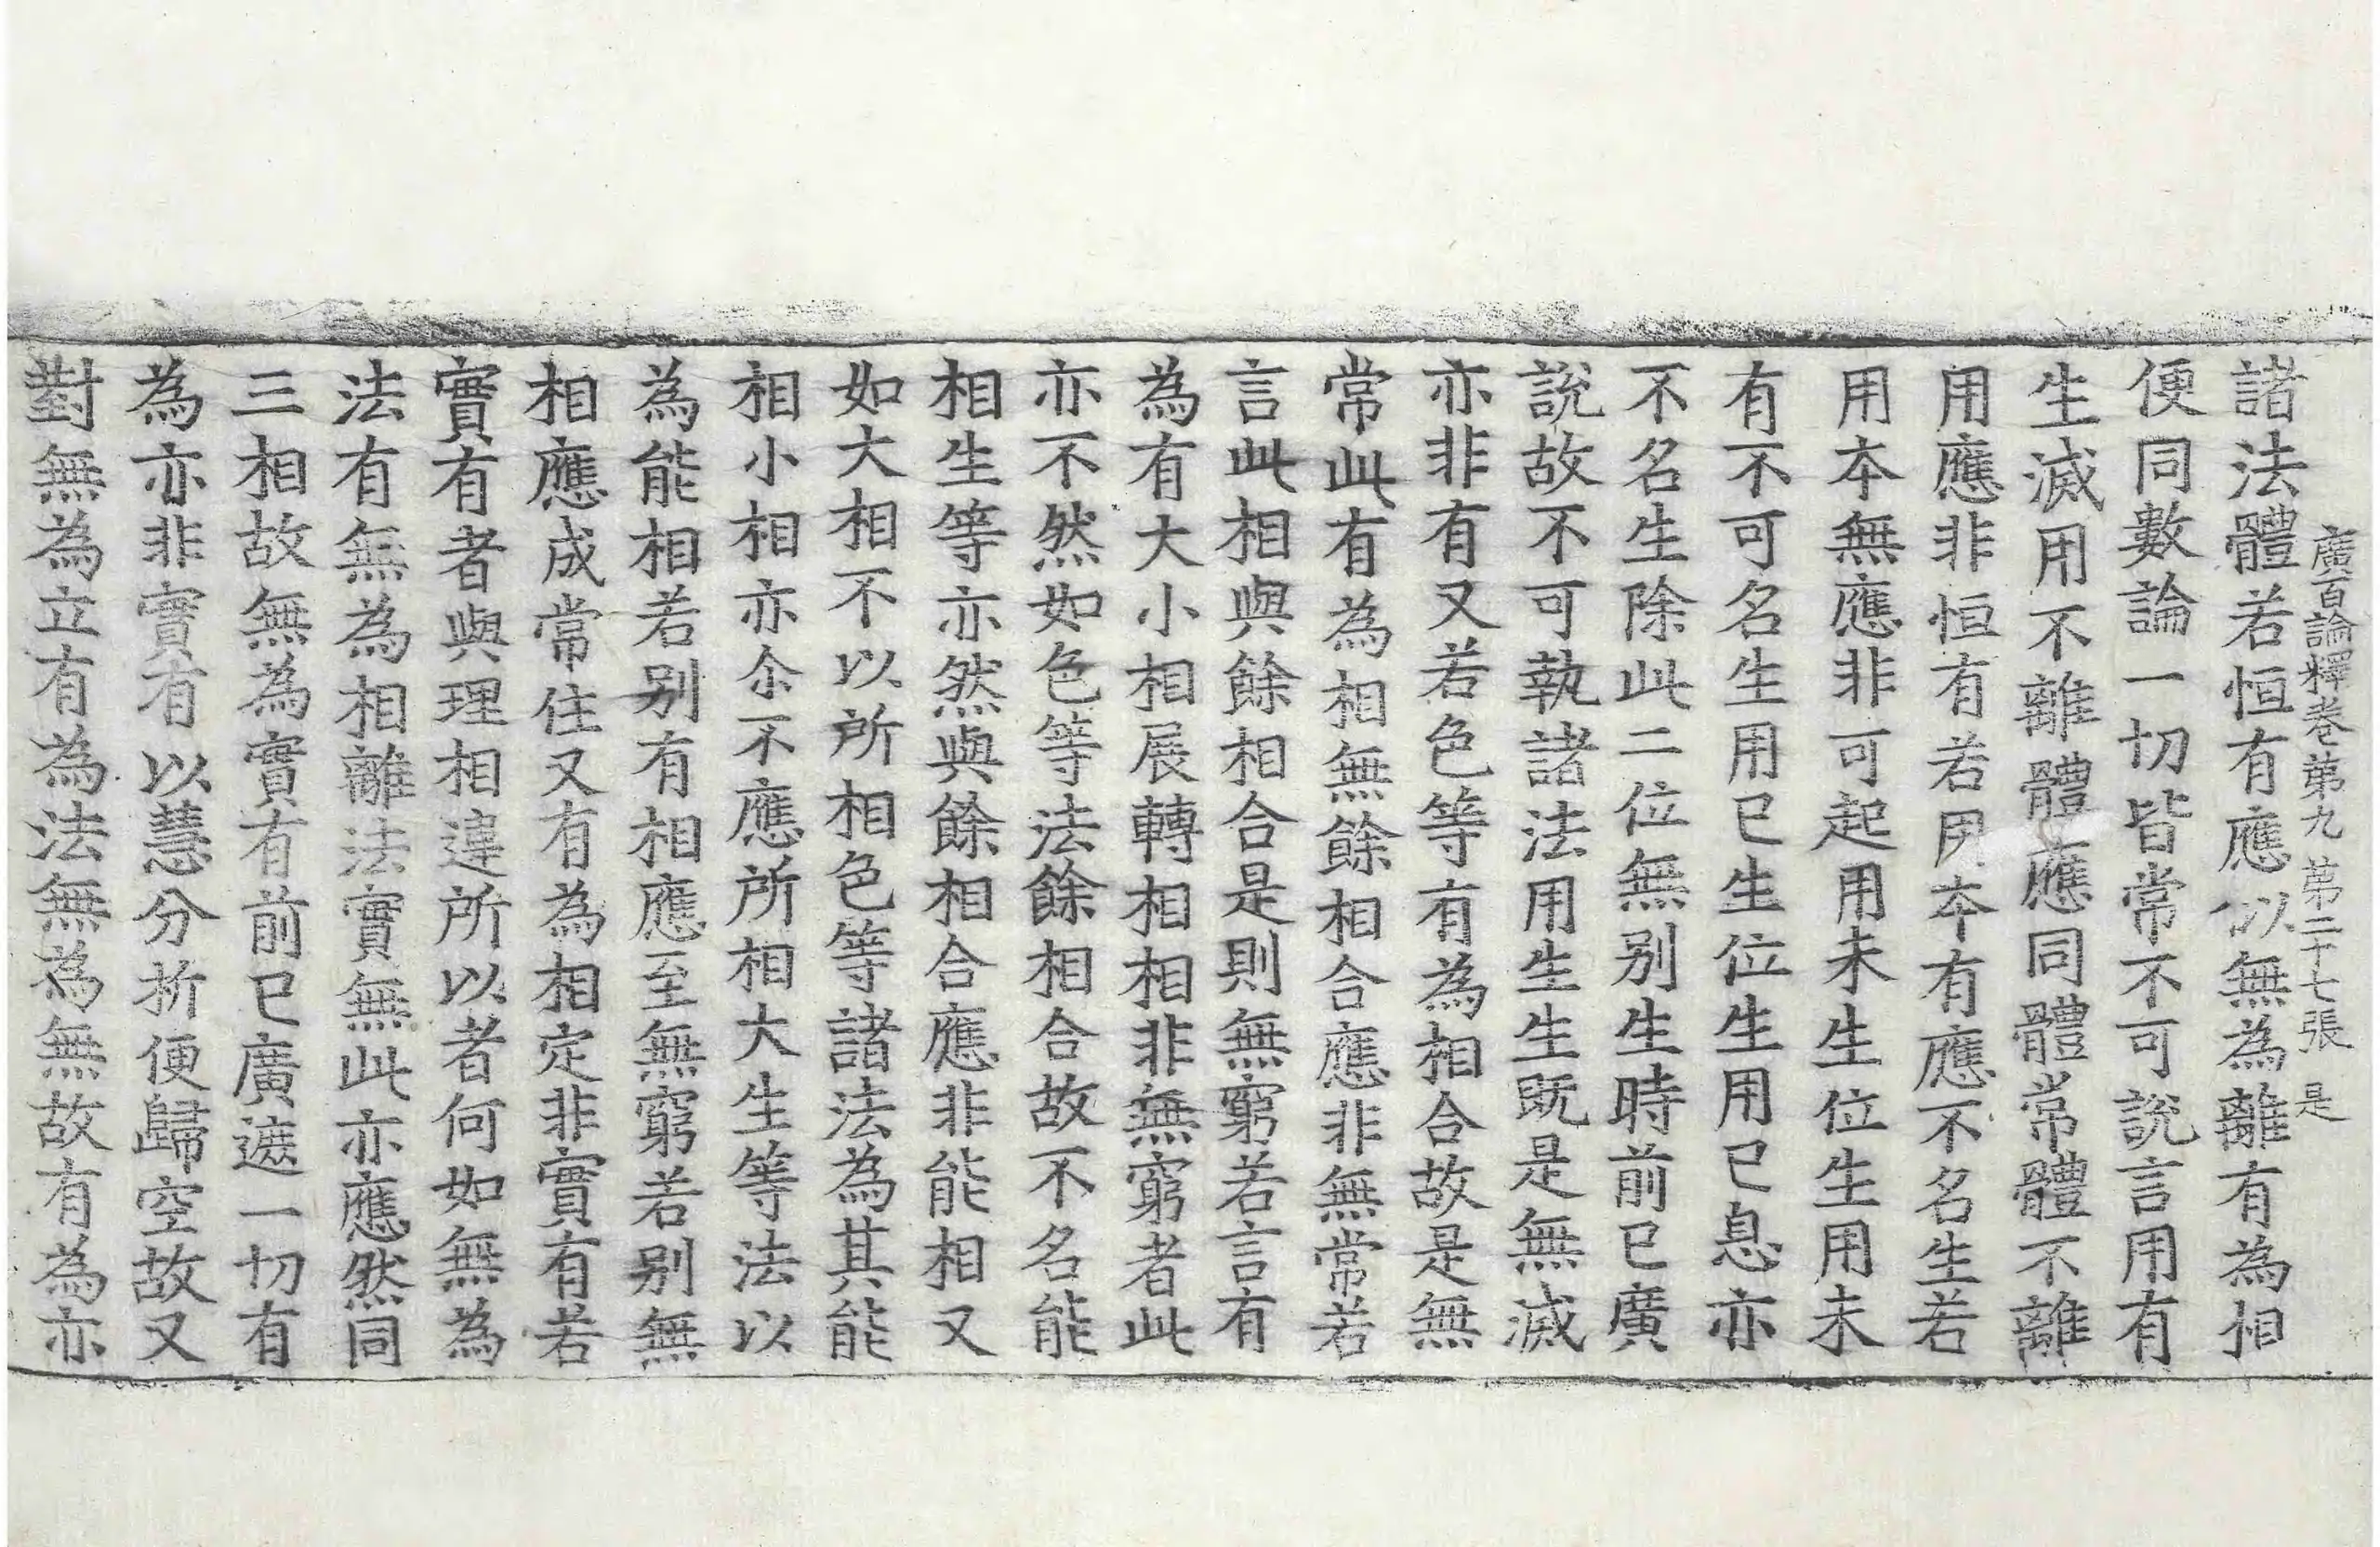 廣百論釋卷第九 第二十七張 是
諸法體若恒有應以無為離有為相
便同數論一切皆常不可說言用有
生滅用不離體應同體常體不離
用應非恒有若用本有應不名生若
用本無應非可起用未生位生用未
有不可名生用已生位生用已息亦
不名生除此二位無别生時前已廣
說故不可執諸法用生生既是無滅
亦非有又若色等有為相合故是無
常此有為相無餘相合應非無常若
言此相與餘相合是則無窮若言有
為有大小相展轉相相非無窮者此
亦不然如色等法餘相合故不名能
相生等亦然與餘相合應非能相又
如大相不以所相色等諸法為其能
相小相亦尒不應所相大生等法以
為能相若别有相應至無窮若别無
相應成常住又有為相定非實有若
實有者與理相違所以者何如無為
法有無為相離法實無此亦應然同
三相故無為實有前已廣遮一切有
為亦非實有以慧分析便歸空故又
對無為立有為法無為無故有為亦